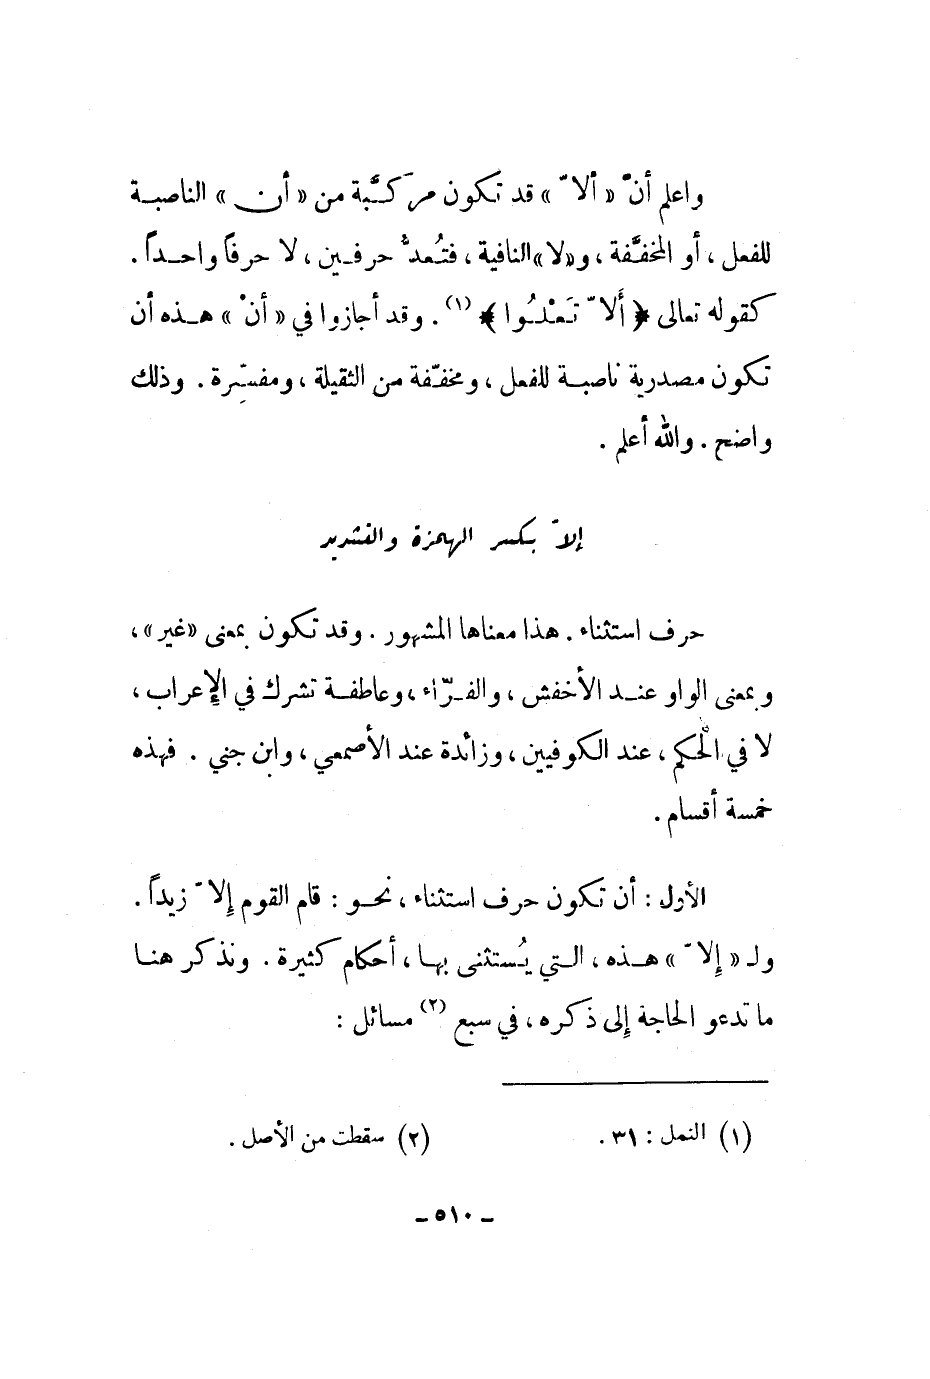 واعلم أنّ « ألاّ » قد تكون مركَّبة من « أن » الناصبة
للفعل ، أو المخفَّفة ، و«لا» النافية ، فتُعدّ حرفين ، لا حرفاً واحداً .
كقوله تعالى ﴿ أَلاّ تَعْلُوا ﴾ (١) . وقد أجازوا في « أنْ » هذه أن
تكون مصدرية ناصبة للفعل ، ومخفّفة من الثقيلة ، ومفسِّرة . وذلك
واضح . والله أعلم .
إلاّ بكسر الهمزة والتشديد
حرف استثناء . هذا معناها المشهور . وقد تكون بمعنى «غير» ،
وبمعنى الواو عند الأخفش ، والفرّاء ، وعاطفة تشرك في الإعراب ،
لا في الحكم ، عند الكوفيين ، وزائدة عند الأصمعي ، وابن جني . فهذه
خمسة أقسام .
الأول : أن تكون حرف استثناء ، نحو : قام القوم إلاّ زيداً .
ولـ « إلاّ » هذه ، التي يُستثنى بها ، أحكام كثيرة . ونذكر هنا
ما تدعو الحاجة إلى ذكره ، في سبع (٢) مسائل :
(١) النمل : ٣١ . (٢) سقطت من الأصل .
– ٥١٠ –